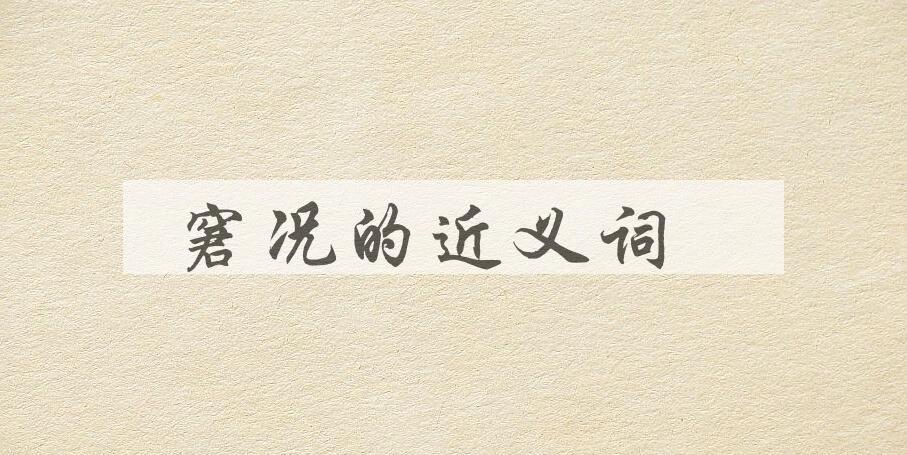 窘况的近义词